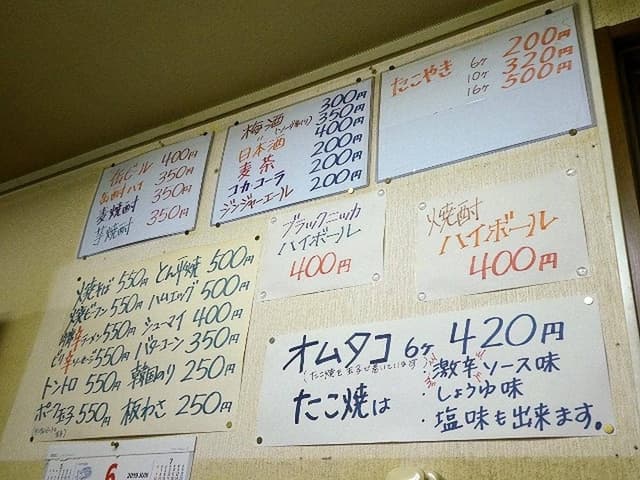 缶ビール 400円
缶酎ハイ 350円
麦焼酎 350円
芋焼酎 350円
梅酒 300円
〃(ソーダ割り) 350円
日本酒 400円
麦茶 200円
コカコーラ 200円
ジンジャーエール 200円
たこやき 6ヶ 200円
10ヶ 320円
16ヶ 500円
ブラックニッカ
ハイボール
400円
焼酎
ハイボール
400円
焼そば 550円 とん平焼 500円
焼ビーフン 550円 ハムエッグ 500円
辛ラーメン 550円 シューマイ 400円
ピリ辛ソーセージ 550円 バターコーン 350円
トントロ 550円 韓国のり 250円
ポーク玉子 550円 板わさ 250円
オムタコ 6ヶ 420円
(たこ焼を玉子で巻いています)
たこ焼は
・激辛ソース味
・しょうゆ味
・塩味も出来ます。
5 6 2019 JUN 7